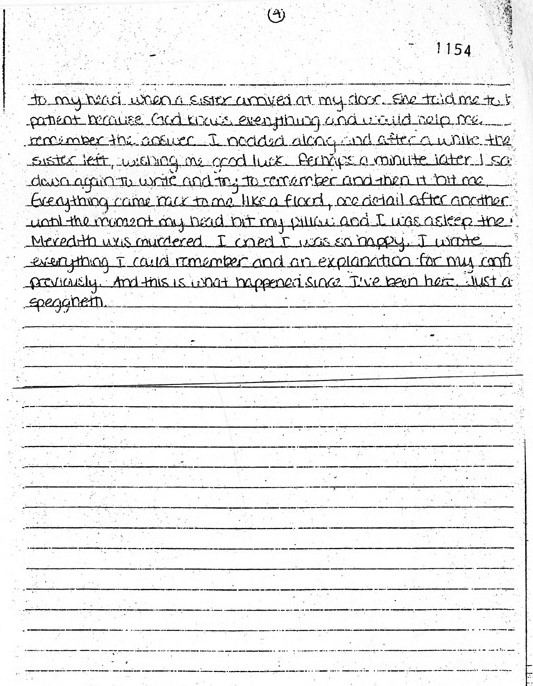 4
1154
to my head when a sister arrived at my door. She told me to
patient because God knows everything and would help me
remember the answer. I nodded along and after a while the
sister left, wishing me good luck. Perhaps a minute later I
down again to write and try to remember and then it hit me.
Everything came back to me like a flood, one detail after another
until the moment my head hit my pillow and I was asleep the
Meredith was murdered. I cried I was so happy. I wrote
everything I could remember and an explanation for my
previously. And this is what happened since I've been here. Just a